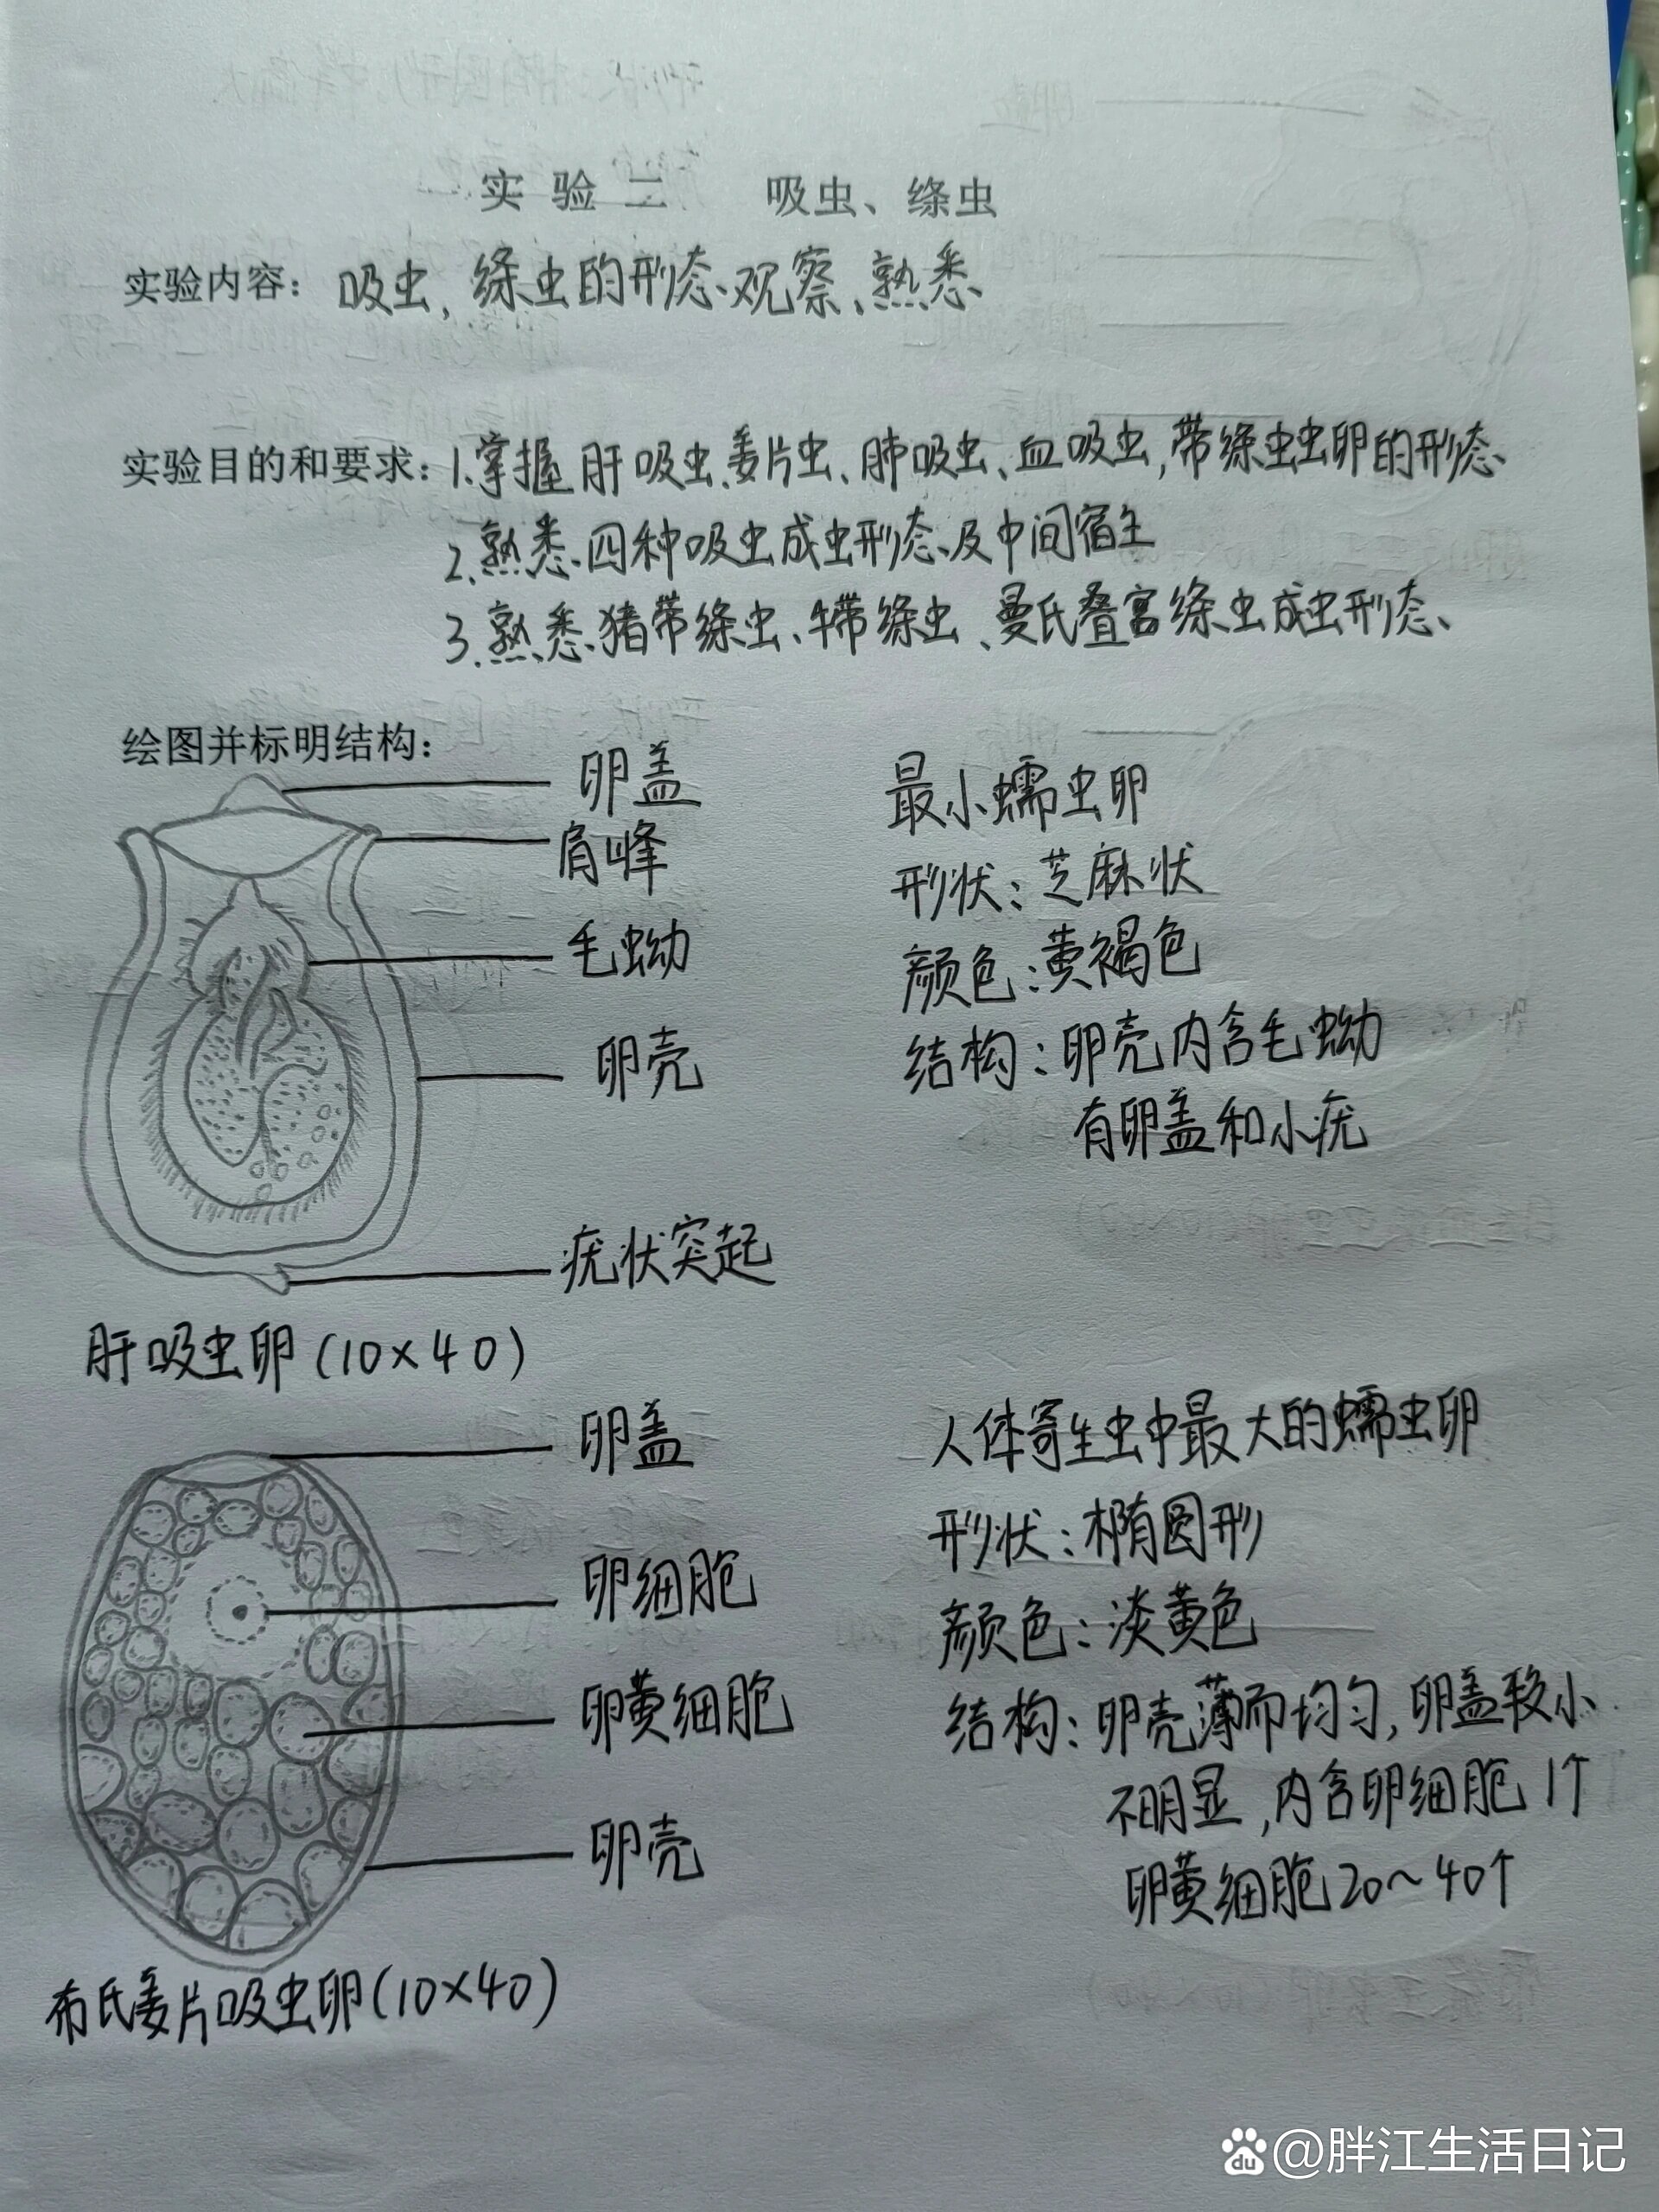 实验二 吸虫、绦虫
实验内容：吸虫、绦虫的形态观察、熟悉
实验目的和要求：1.掌握肝吸虫、姜片虫、肺吸虫、血吸虫，带绦虫虫卵的形态
2.熟悉四种吸虫成虫形态及中间宿主
3.熟悉猪带绦虫、牛带绦虫、曼氏叠宫绦虫成虫形态、
绘图并标明结构：
卵盖
肩峰
毛蚴
卵壳
疣状突起
肝吸虫卵(10×40)
最小蠕虫卵
形状：芝麻状
颜色：黄褐色
结构：卵壳内含毛蚴
有卵盖和小疣
卵盖
卵细胞
卵黄细胞
卵壳
布氏姜片吸虫卵(10×40)
人体寄生虫中最大的蠕虫卵
形状：椭圆形
颜色：淡黄色
结构：卵壳薄而均匀，卵盖较小
不明显，内含卵细胞1个
卵黄细胞20～40个
du @胖江生活日记